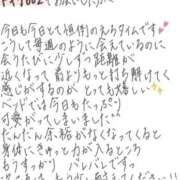 今日も今日とて恒例のえちタイムです
こうして毎週のように会えているのに
会うたびに少しずつ距離が
近くなって前よりもっと打ち解けてく
感じがするのが とっても嬉しい
ベッドでは今日もたっぷり
可愛がってしまいました
だんだん余裕がなくなってくると
身体にきゅっと力が入るところ
もうすっかり バレバレです